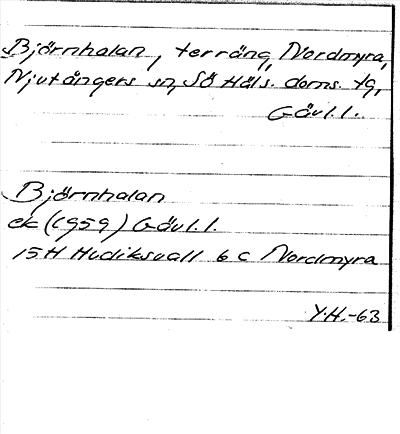 Björnhalan, terräng, Nordmyra,
Njutångers sn, Sö Häls. doms. tg,
Gävl.l.
Björnhalan
ek (1959) Gävl.l.
15H Hudiksvall 6 c Nordmyra
Y.H.-63